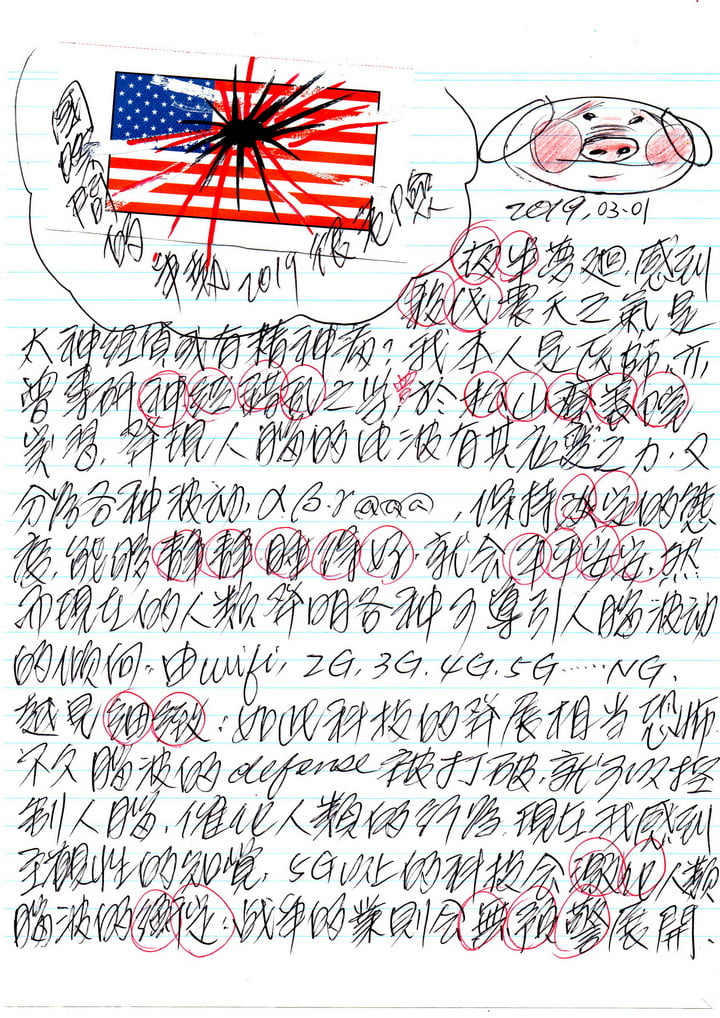 2019.03.01
感的
2019 很
夜半夢迴,感到
殺伐震天之氣是
太神經質或有精神病?我本人是醫師,亦
曾專研神經錯亂之學曾於松山療養院
實習,發現人腦的波有其之力,又
分為各種波動,α β.r@@@,保持淡定的態
度,能夠靜靜時得好,就会平平安安,然
而現在的人類發明各種可導引人腦波動
的傾向,由wifi, 2G.3G.4G.5G……NG.
越見細緻:如此科技的發展相当恐怖.
不久腦波的defense被打破,就可以控
制人腦,催化人類的行為,現在我感到
主觀性的知覺,5G以上的科技会激化人類
腦波的:战争的業則会無預警展開.